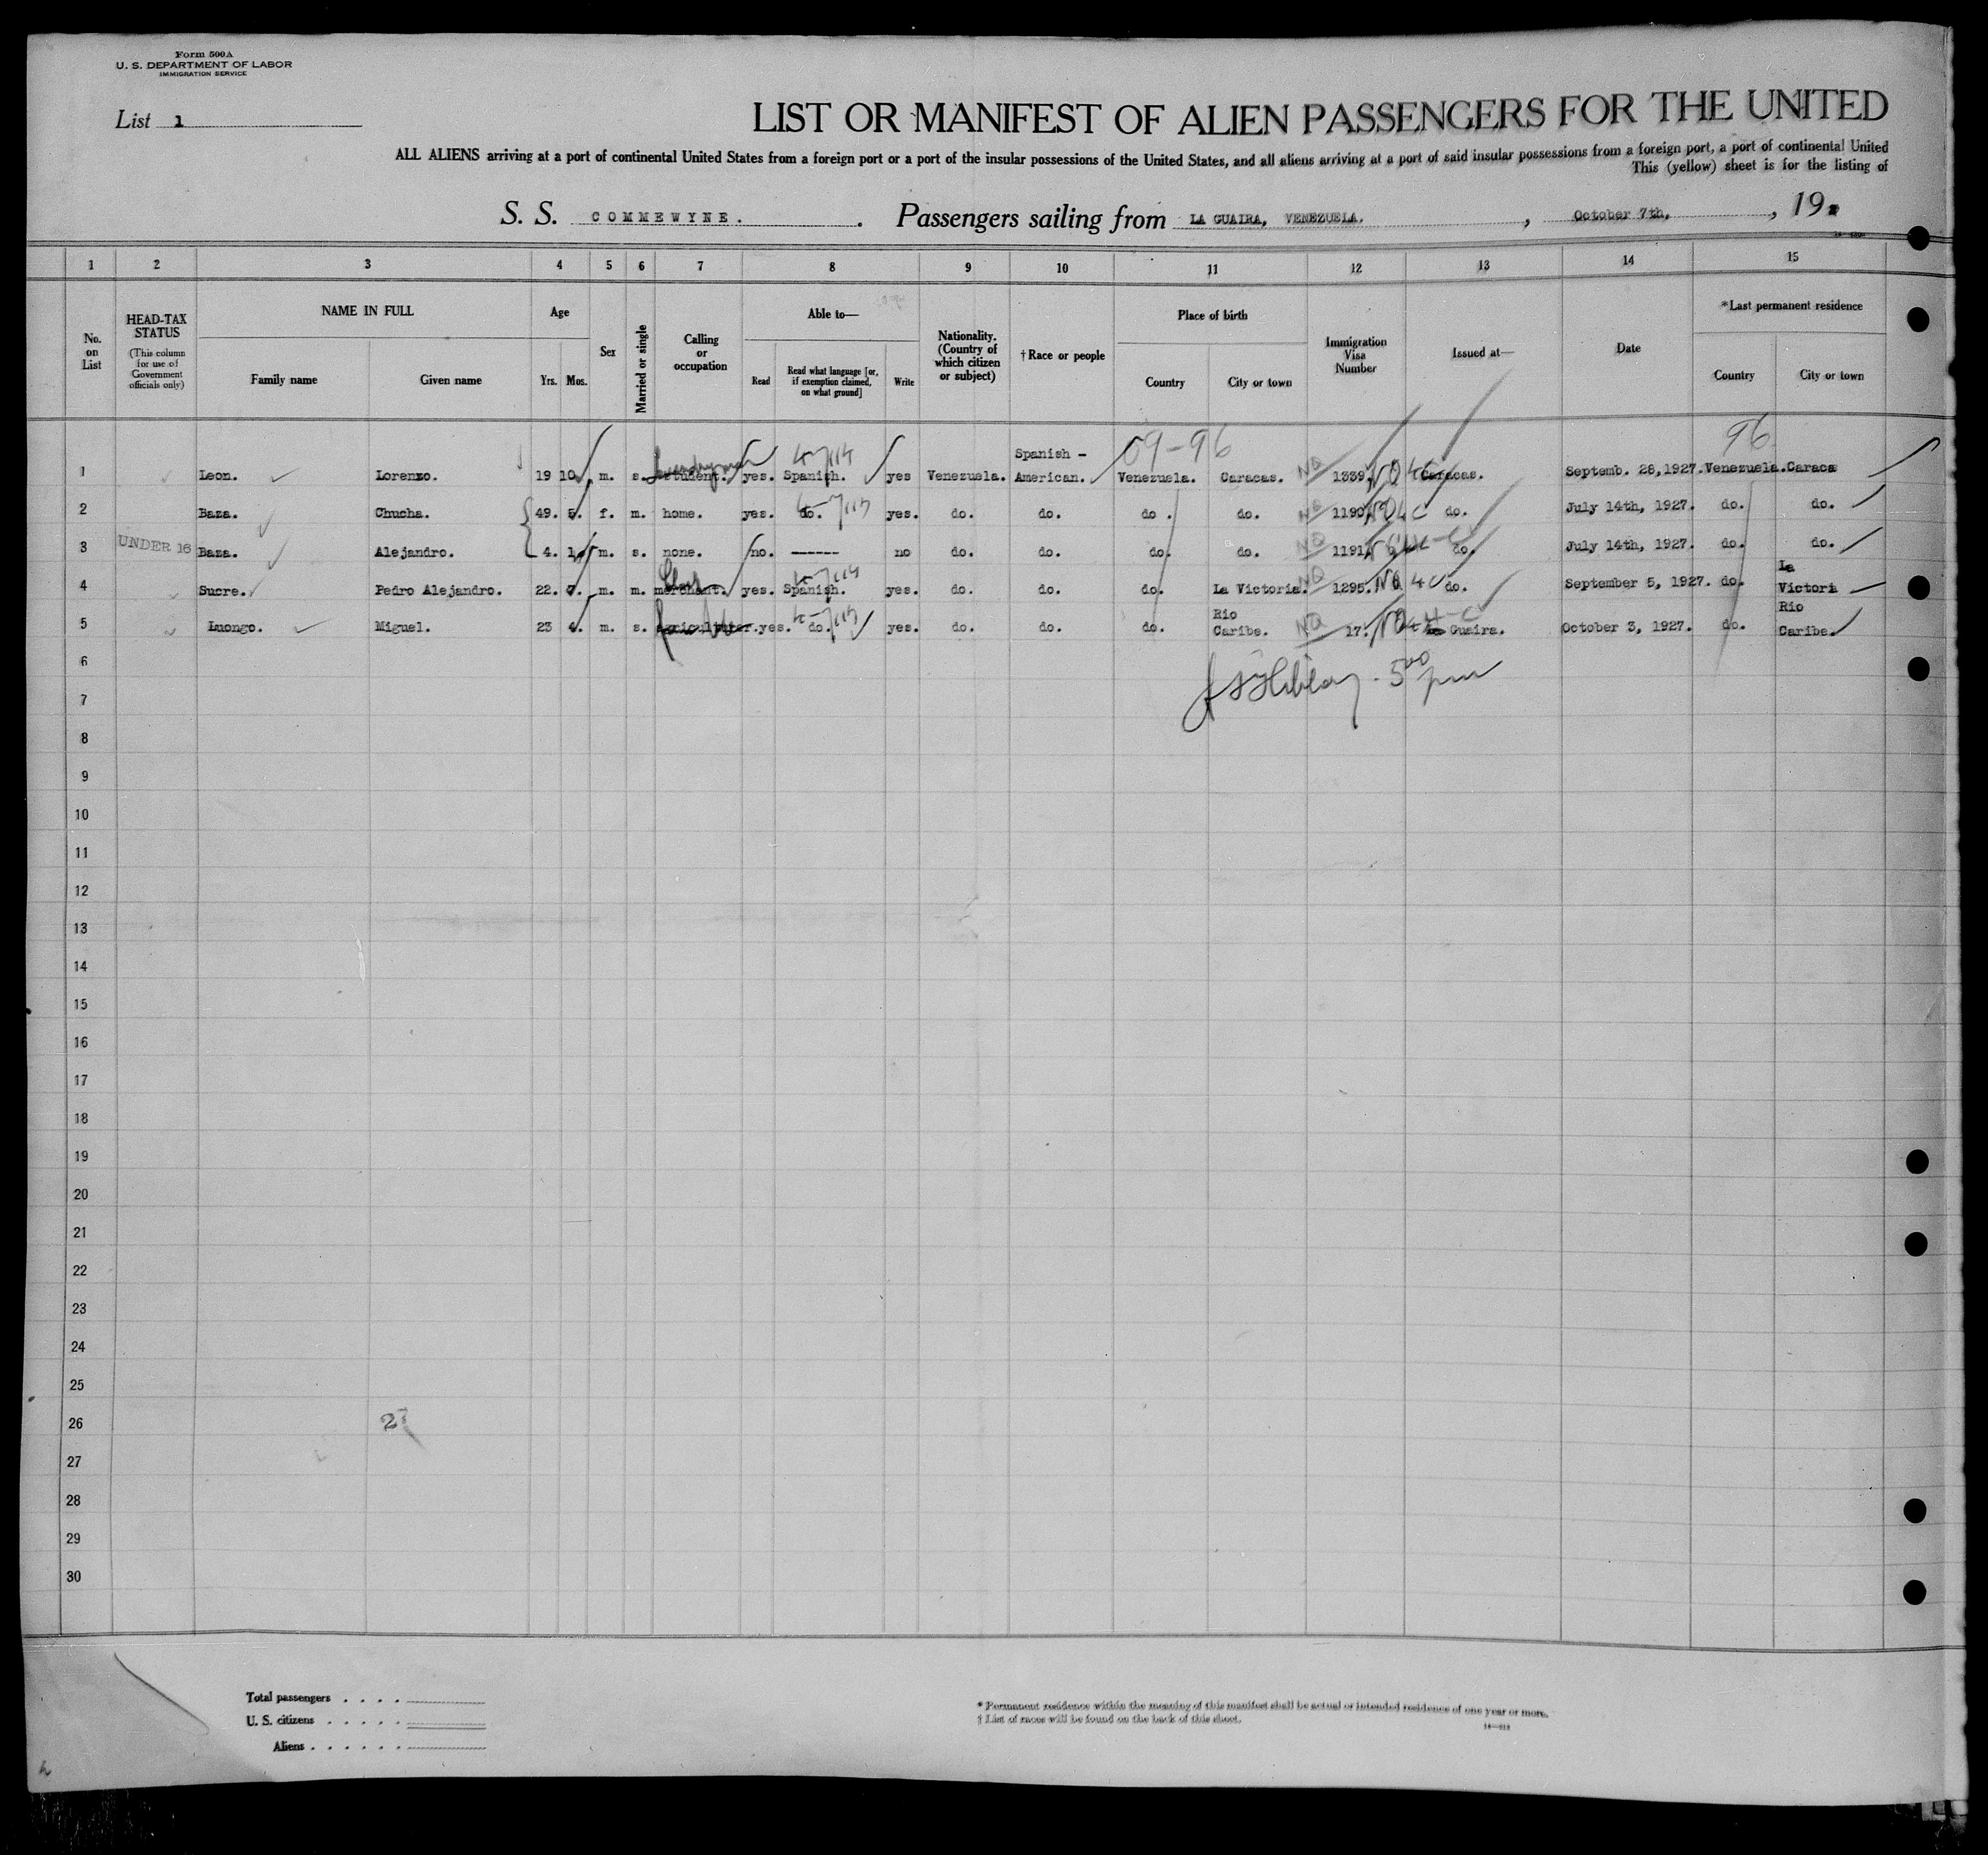 Form 500A
U. S. DEPARTMENT OF LABOR
IMMIGRATION SERVICE
List 1
LIST OR MANIFEST OF ALIEN PASSENGERS FOR THE UNITED
ALL ALIENS arriving at a port of continental United States from a foreign port or a port of the insular possessions of the United States, and all aliens arriving at a port of said insular possessions from a foreign port, a port of continental United
This (yellow) sheet is for the listing of
S. S. COMMEWYNE. . Passengers sailing from LA GUAIRA, VENEZUELA. , October 7th, , 19
1 2 3 4 5 6 7 8 9 10 11 12 13 14 15
No. on List
HEAD-TAX STATUS
(This column for use of Government officials only)
NAME IN FULL
Family name Given name
Age
Yrs. Mos.
Sex
Married or single
Calling or occupation
Able to—
Read
Read what language [or, if exemption claimed, on what ground]
Write
Nationality. (Country of which citizen or subject)
† Race or people
Place of birth
Country City or town
Immigration Visa Number
Issued at—
Date
*Last permanent residence
Country City or town
09-96 96
1 Leon. Lorenzo. 19 10 m. s. student. yes. Spanish. yes Venezuela. Spanish - American. Venezuela. Caracas. NQ 1339 NQ 4C Caracas. Septemb. 28,1927. Venezuela. Caracs
2 Baza. Chucha. 49. 5. f. m. home. yes. do. yes. do. do. do . do. NQ 1190 NQ 4C do. July 14th, 1927. do. do.
3 UNDER 16 Baza. Alejandro. 4. 1 m. s. none. no. ------ no do. do. do. do. NQ 1191 do. July 14th, 1927. do. do.
4 Sucre. Pedro Alejandro. 22. 7. m. m. merchant. yes. Spanish. yes. do. do. do. La Victoria. NQ 1295. NQ 4C do. September 5, 1927. do. La Victori
5 Luongo. Miguel. 23 4. m. s. agricultuter. yes. do. yes. do. do. do. Rio Caribe. NQ 17. NQ 4-C La Guaira. October 3, 1927. do. Rio Caribe.
6
500 pm
7
8
9
10
11
12
13
14
15
16
17
18
19
20
21
22
23
24
25
26
27
28
29
30
Total passengers . . . .
U. S. citizens . . . . .
Aliens . . . . . .
* Permanent residence within the meaning of this manifest shall be actual or intended residence of one year or more.
† List of races will be found on the back of this sheet.